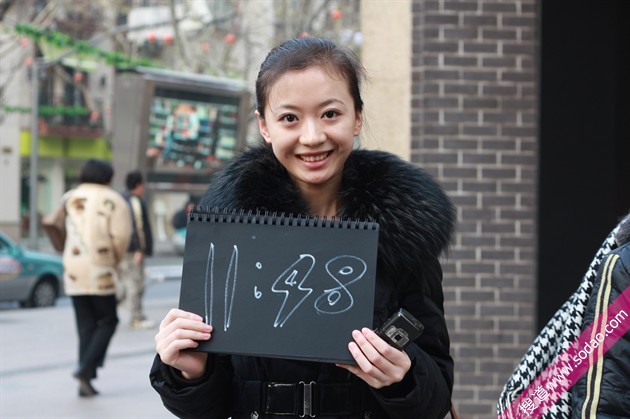 11:48
搜道 www.sodao.com